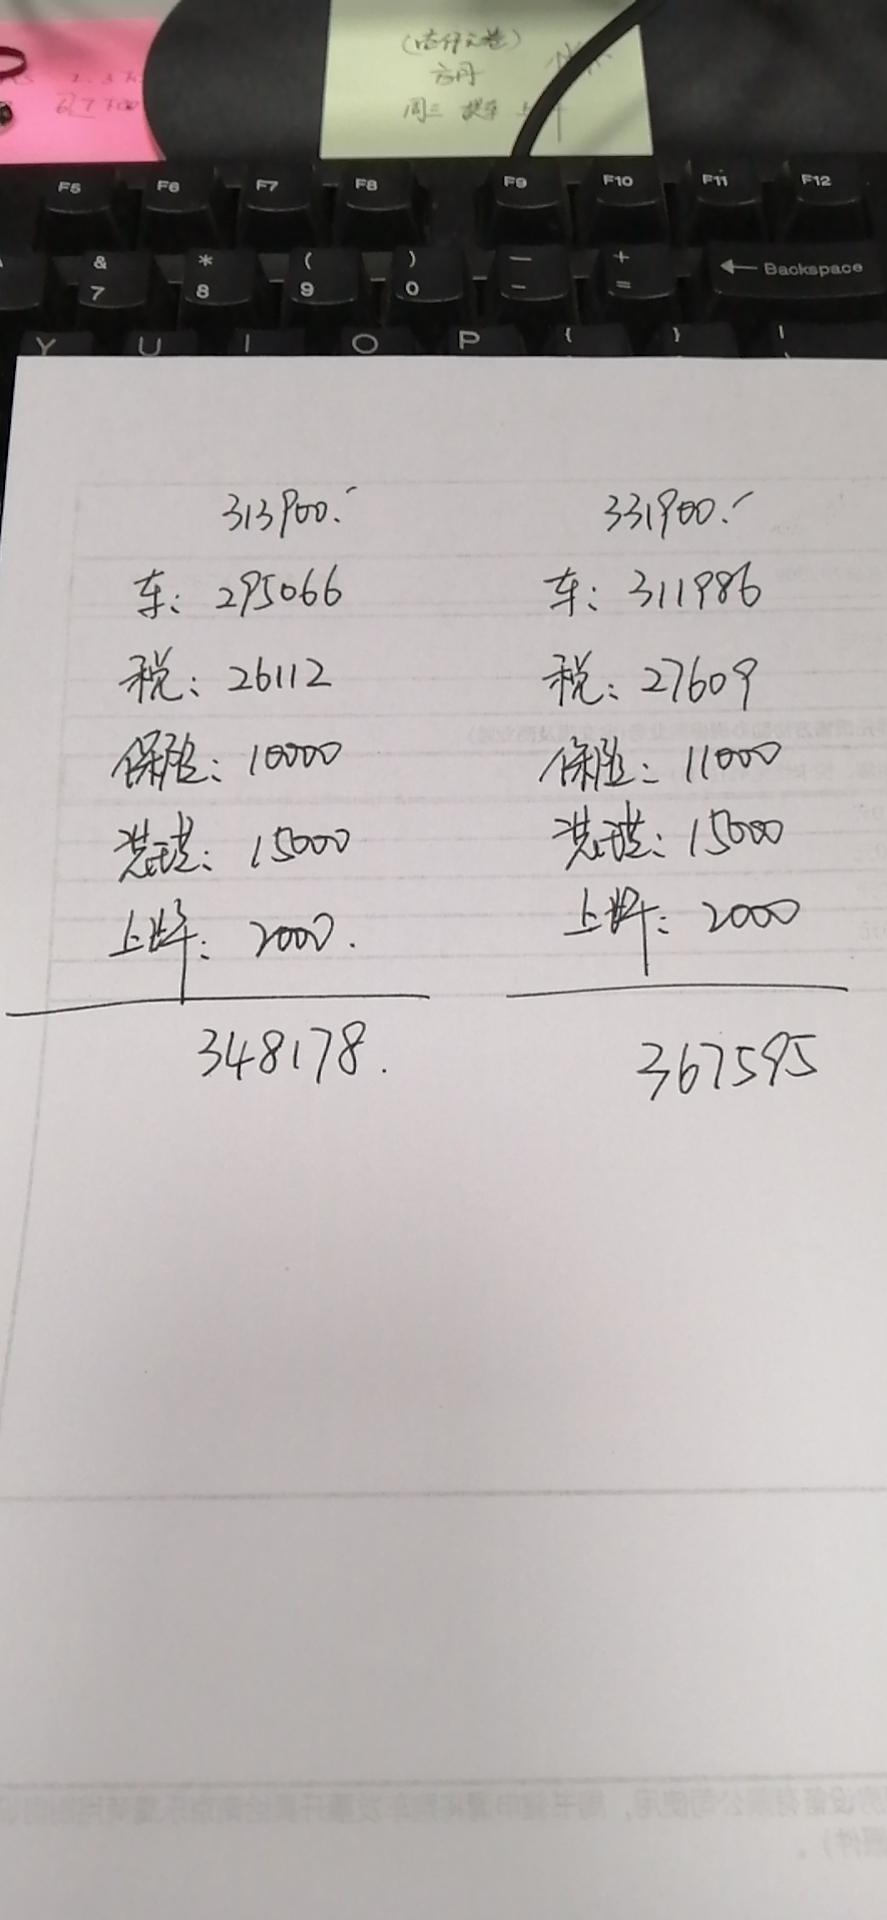 (店仔元楚)
方丹
周三 提车 上午
F5 F6 F7 F8 F9 F10 F11 F12
& * ( ) — +
7 8 9 0 - = Backspace
Y U I O P { } |
313900.
车: 295066
税: 26112
保险: 10000
选装: 15000
上牌: 2000.
348178.
331900.
车: 311986
税: 27609
保险: 11000
选装: 15000
上牌: 2000
367595